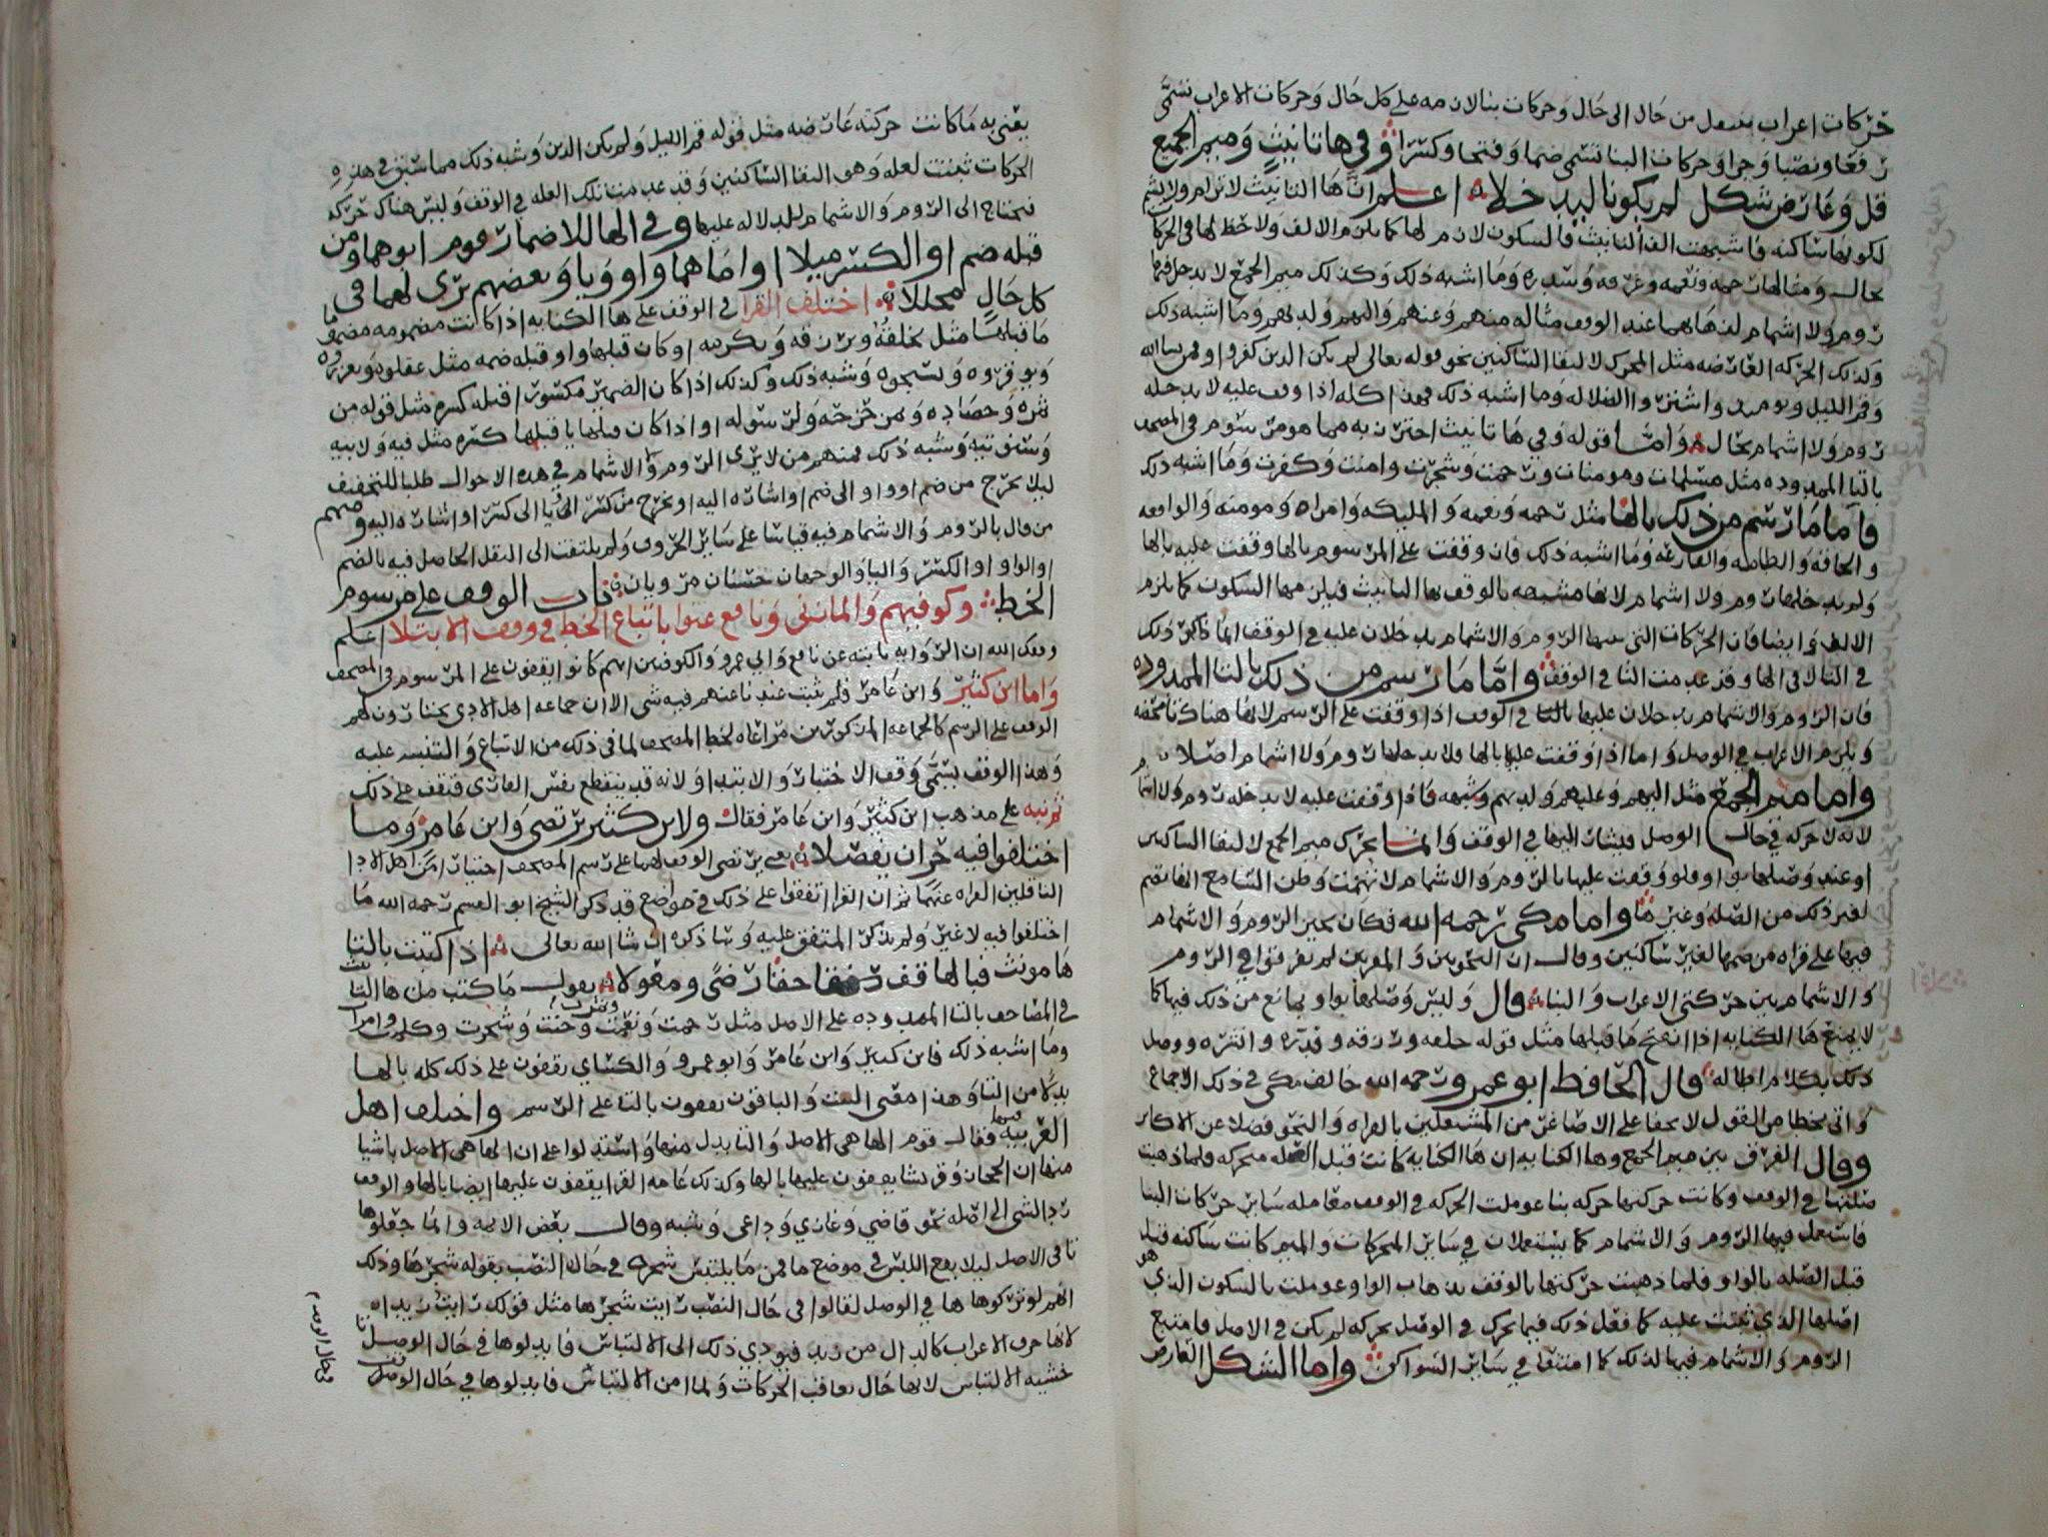 حركات اعراب تنتقل من حال الى حال وحركات بنا لازمه على كل حال وحركات الاعراب تسمى
رفعا ونصبا وجرا وحركات البنا تسمى ضما وفتحا وكسرا وفي ها تانيث وميم الجميع
قل وعارض شكل لم يكونا ليدخلا اعلم ان ها التانيث لا ترام ولا تشم
لكونها ساكنه واشبهت الف التانيث فالسكون لازم لها كما يلزم الالف ولا حظ لها في الحركا
بحال ومثالها رحمه ونعمه وغرفه وسدره وما اشبه ذلك وكذلك ميم الجمع لا يدخل فيها
روم ولا اشمام لذهابهما عند الوقف مثاله منهم وعنهم واليهم ولديهم وما اشبه ذلك
وكذلك الحركه العارضه مثل المحرك لالتقا الساكنين نحو قوله تعالى لم يكن الذين كفروا ومن يشا الله
وقم الليل ويومئذ واشتروا الضلاله وما اشبه ذلك فهذا كله اذا وقف عليه لا يدخله
روم ولا اشمام بحال واما قوله وفي ها تانيث احترز به مما هو مرسوم في المصحف
بالتا الممدوده مثل مسلمات ومومنات ورحمت وشجرت وامنت وكفرت وما اشبه ذلك
فاما ما رسم من ذلك بالها مثل رحمه ونعمه والمليكه وامراه ومومنه والواقعه
والحاقه والطامه والقارعه وما اشبه ذلك فان وقفت على المرسوم بالها وقفت عليه بالها
ولم يدخلها روم ولا اشمام لانها مشبهه بالوقف بها التانيث فيلزمها السكون كما يلزم
الالف وايضا فان الحركات التي بينها الروم والاشمام يدخلان عليه في الوقف انما ذلك
في التا لا في الها وقد عدمت التا في الوقف واما ما رسم من ذلك بالتا الممدوده
فان الروم والاشمام يدخلان عليها بالتا في الوقف اذا وقفت على الرسم لانها هناك تا محضه
ويلزم الاعراب في الوصل واما اذا وقفت عليها بالها فلا يدخلها روم ولا اشمام اصلا
واما ميم الجمع مثل اليهم وعليهم ولديهم وشبهه فاذا وقفت عليه لا يدخله روم ولا اشما
لانه لا حركه في حال الوصل فيشار اليها في الوقف وانما تحرك ميم الجمع لالتقا الساكنين
او عند وصلها بواو فلو وقفت عليها بالروم والاشمام لا توهمت وظن السامع انها تضم
لغير ذلك من الصله وغيرها واما مكي رحمه الله فكان يجيز الروم والاشمام
فيها على قراه من ضمها لغير ساكنين وقال ان النحويين والمقريين لم يفرقوا في الروم
والاشمام بين حركتي الاعراب والبنا قال وليس وصلها بواو بمانع من ذلك فيها كما
لا يمنع ها الكنايه اذا انفتح ما قبلها مثل قوله خلقه ورزقه وقدره وانشره ووصل
ذلك بكلام اطاله قال الحافظ ابو عمرو رحمه الله خالف مكي في ذلك الاجماع
واتى بخطا من القول لا يخفا على الاصاغر من المشتغلين بالقراه والنحو فضلا عن الاكابر
وقال الفرق بين ميم الجمع وها الكنايه ان ها الكنايه كانت قبل الصله متحركه فلما ذهبت
صلتها في الوقف وكانت حركتها حركه بنا عوملت الحركه في الوقف معامله ساير حركات البنا
فاستعمل فيها الروم والاشمام كما يستعملان في ساير المتحركات والميم كانت ساكنه قبل
قبل الصله بالواو فلما ذهبت حركتها بالوقف بذهاب الواو عوملت بالسكون الذي هو
اصلها الذي بنيت عليه كما فعل ذلك فيما تحرك في الوصل بحركه لم يكن في الاصل فامتنع
الروم والاشمام فيها لذلك كما امتنعا في ساير السواكن واما الشكل العارض
يعني به ما كانت حركته عارضه مثل قوله قم الليل ولم يكن الذين وشبه ذلك مما سبق في هذه
الحركات ثبتت لعله وهو التقا الساكنين وقد عدمت تلك العله في الوقف وليس هناك حركه
فتحتاج الى الروم والاشمام للدلاله عليها وفي الها للاضمار قوم ابوهما ومن
قبله ضم او الكسر ميلا او اماهما واو ويا وبعضهم يرى لهما في
كل حال محللا اختلف القرا في الوقف على ها الكنايه اذا كانت مضمومه مضموما
ما قبلها مثل يخلقه ويرزقه ويكرمه او كان قبلها واو قبله ضمه مثل عقلوه ويعزروه
ويوقروه ويسبحوه وشبه ذلك وكذلك اذا كان الضمير مكسورا قبله كسره مثل قوله من
ثمره وحصاده ومن خزحه ولرسوله او اذا كان قبلها يا قبلها كسره مثل فيه ولابيه
وسنوتيه وشبه ذلك فمنهم من لا يرى الروم والاشمام في هذه الاحوال طلبا للتخفيف
ليلا يخرج من ضم او واو الى ضم او اشاره اليه او يخرج من كسر او يا الى كسر او اشاره اليه ومنهم
من قال بالروم والاشمام فيه قياسا على ساير الحروف ولم يلتفت الى الثقل الحاصل فيه بالضم
او الواو او الكسر واليا والوجهان حسنان مرويان باب الوقف على مرسوم
الخط وكوفيهم والمازني ونافع عنوا باتباع الخط في وقف الابتلا اعلم
وفقك الله ان الروايه ثابته عن نافع وابي عمرو والكوفيين انهم كانوا يقفون على المرسوم في المصحف
واما ابن كثير وابن عامر فلم يثبت عندنا عنهم فيه شي الا ان جماعه اهل الادا يختارون لهم
الوقف على الرسم كالجماعه المذكورين مراعاه لخط المصحف لما في ذلك من الاتباع والتنبيه عليه
وهذا الوقف يسمى وقف الاختبار والابتلا ولانه قد ينقطع نفس القاري فيقف على ذلك
ثم نبه على مذهب ابن كثير وابن عامر فقال ولابن كثير يرتضى وابن عامر وما
اختلفوا فيه حر ان يفصلا يعني يرتضى الوقف لهما على رسم المصحف اختيارا من اهل الادا
الناقلين القراه عنهما ثم ان القرا اتفقوا على ذلك في مواضع قد ذكر الشيخ ابو القسم رحمه الله ما
اختلفوا فيه لا غير ولم يذكر المتفق عليه وسا ذكره ان شا الله تعالى اذا كتبت بالتا
ها مونث فبالها قف رضى حقا ومعولا يقول ما كتب من ها التانيث
في المصاحف بالتا الممدوده على الاصل مثل رحمت ونعمت وجنت وشجرت وكلمت وامرات
وما اشبه ذلك فابن كثير وابن عامر وابو عمرو والكساي يقفون على ذلك كله بالها
بدلا من التا وهذا معنى البيت والباقون يقفون بالتا على الرسم واختلف اهل
العربيه فيها فقال قوم الها هي الاصل والتا بدل منها واستدلوا على ان الها هي الاصل باشيا
منها ان الحجاز وقريشا يقفون عليها بالها وكذلك عامه القرا يقفون عليها ايضا بالها والوقف
رد الشي الى اصله نحو قاضي وغازي وداعي وشبه وقال بعض الايمه وانما جعلوها
تا في الاصل ليلا يقع اللبس في موضع ما فمن ما يلتبس شجره في حال النصب بقوله شجرها وذلك
انهم لو تركوها ها في الوصل لقالوا في حال النصب رايت شجرها مثل قولك رايت زيدا
لانها حرف الاعراب كالدال من زيد فيودي ذلك الى الالتباس فابدلوها في حال الوصل تا
خشيه الالتباس لانها حال تعاقب الحركات ولما امن الالتباس فابدلوها في حال الوقف
في حال الوصل